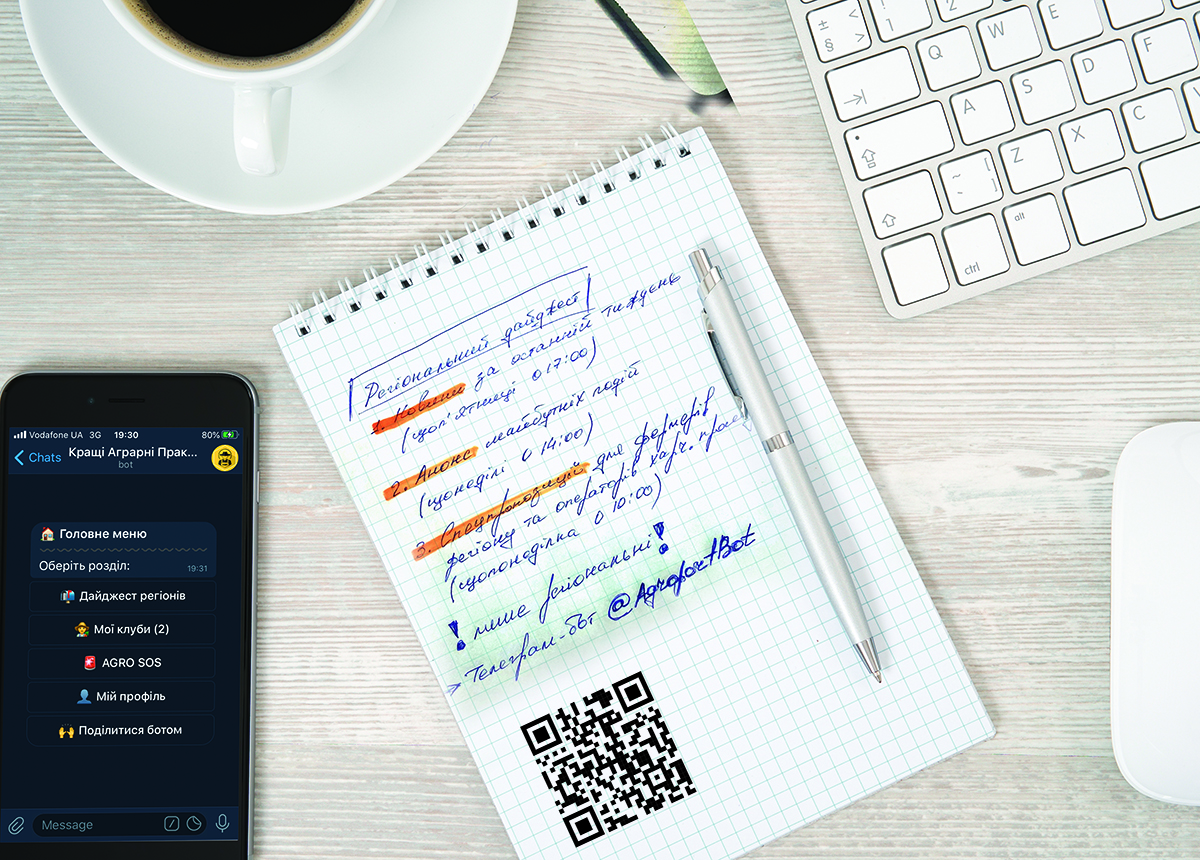 Регіональний дайджест
1. Новини за останній тиждень
(щоп'ятниці о 17:00)
2. Анонс майбутніх подій
(щонеділі о 14:00)
3. Спецпропозиції для фермерів
регіону та операторів харч.
(щопонеділка о 10:00)
! лише регіональні!
→ Телеграм-бот @AgroportBot
Vodafone UA 3G 19:30 80%
Chats
Кращі Аграрні Прак...
bot
Головне меню
Оберіть розділ:
19:31
Дайджест регіонів
Мої клуби (2)
AGRO SOS
Мій профіль
Поділитися ботом
Message
± <
§ >
!
1
2
Q W E
A S D F
Z X C V
~ [
, ]
ctrl
alt